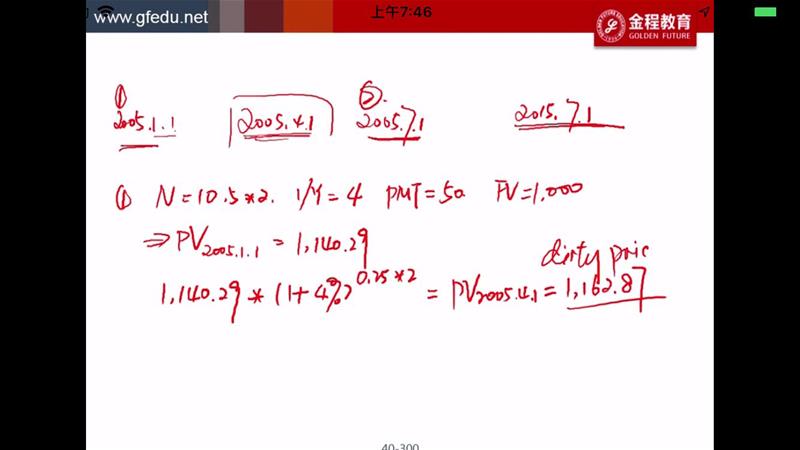 上午7:46
www.gfedu.net
金程教育
GOLDEN FUTURE
① ②
2005.1.1 2005.4.1 2005.7.1 2015.7.1
① N=10.5*2. I/Y=4 PMT=50 FV=1,000
⇒PV2005.1.1 = 1,140.29
dirty price
1,140.29 * (1+4%)^0.25*2 = PV2005.4.1 = 1,162.87
40-300